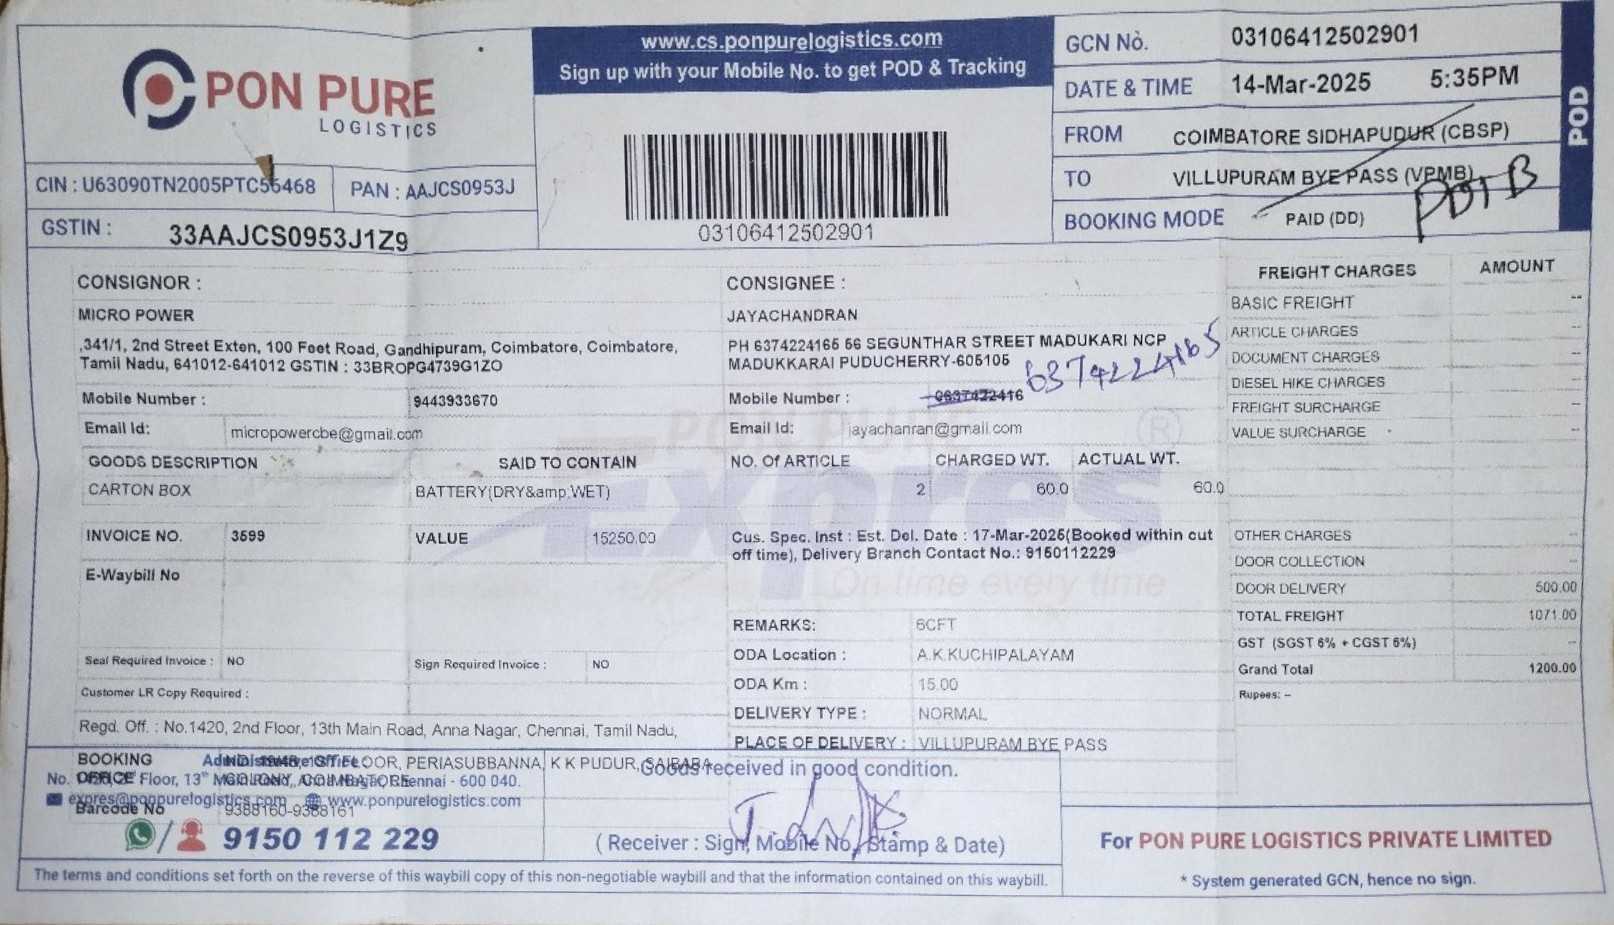 PON PURE
LOGISTICS
www.cs.ponpurelogistics.com
Sign up with your Mobile No. to get POD & Tracking
GCN No. 03106412502901
DATE & TIME 14-Mar-2025 5:35PM
FROM COIMBATORE SIDHAPUDUR (CBSP)
TO VILLUPURAM BYE PASS (VPMB)
BOOKING MODE PAID (DD)
POD
CIN : U63090TN2005PTC56468 PAN : AAJCS0953J
GSTIN : 33AAJCS0953J1Z9
03106412502901
CONSIGNOR :
MICRO POWER
,341/1, 2nd Street Exten, 100 Feet Road, Gandhipuram, Coimbatore, Coimbatore,
Tamil Nadu, 641012-641012 GSTIN : 33BROPG4739G1ZO
Mobile Number : 9443933670
Email Id: micropowercbe@gmail.com
CONSIGNEE :
JAYACHANDRAN
PH 6374224165 56 SEGUNTHAR STREET MADUKARI NCP
MADUKKARAI PUDUCHERRY-605105
6374224165
Mobile Number : 0637422416
Email Id: jayachanran@gmail.com
FREIGHT CHARGES AMOUNT
BASIC FREIGHT --
ARTICLE CHARGES --
DOCUMENT CHARGES --
DIESEL HIKE CHARGES --
FREIGHT SURCHARGE --
VALUE SURCHARGE --
GOODS DESCRIPTION SAID TO CONTAIN NO. Of ARTICLE CHARGED WT. ACTUAL WT.
CARTON BOX BATTERY(DRY&amp;WET) 2 60.0 60.0
PON PURE
Expres
On time every time
INVOICE NO. 3599 VALUE 15250.00
E-Waybill No
Cus. Spec. Inst : Est. Del. Date : 17-Mar-2025(Booked within cut
off time), Delivery Branch Contact No.: 9150112229
OTHER CHARGES
DOOR COLLECTION --
DOOR DELIVERY 500.00
TOTAL FREIGHT 1071.00
GST (SGST 6% + CGST 6%) --
Grand Total 1200.00
Rupees: --
REMARKS: 6CFT
ODA Location : A.K.KUCHIPALAYAM
ODA Km : 15.00
DELIVERY TYPE : NORMAL
PLACE OF DELIVERY : VILLUPURAM BYE PASS
Seal Required Invoice : NO Sign Required Invoice : NO
Customer LR Copy Required :
Regd. Off. : No.1420, 2nd Floor, 13th Main Road, Anna Nagar, Chennai, Tamil Nadu,
BOOKING OFFICE FLOOR, PERIASUBBANNA, K K PUDUR, SAIBABA
COLONY, COIMBATORE
Administrative Office
Floor, 13th Chennai - 600 040.
expres@ponpurelogistics.com www.ponpurelogistics.com
Barcode No 9388160-9388161
9150 112 229
Goods received in good condition.
(Receiver : Sign, Mobile No., Stamp & Date)
For PON PURE LOGISTICS PRIVATE LIMITED
* System generated GCN, hence no sign.
The terms and conditions set forth on the reverse of this waybill copy of this non-negotiable waybill and that the information contained on this waybill.